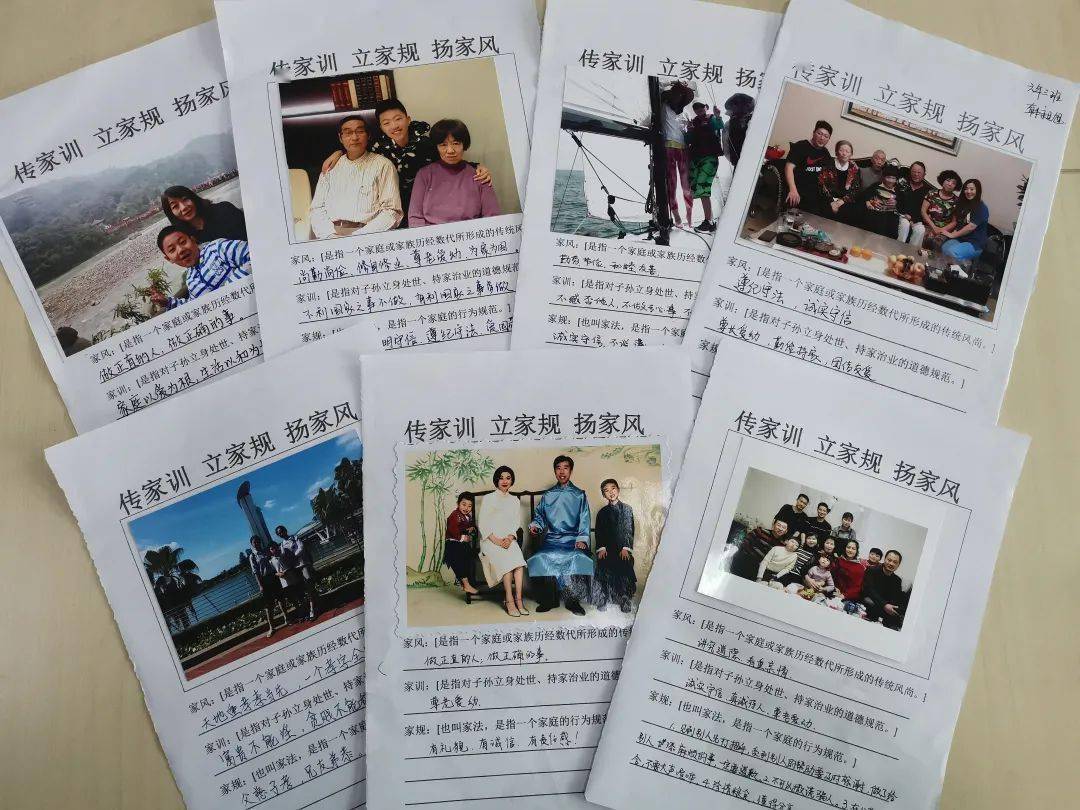 传家训 立家规 扬家风
家风：[是指一个家庭或家族历经数代所形成的传统
做正直的人，做正确的事。
家训：[是指对子孙立身处世、持家治
家庭以俭为根，生活以知为
传家训 立家规 扬家风
家风：[是指一个家庭或家族历经数代所形成的传统风
尚勤尚俭，修身修业，尊老爱幼，为家为国，
家训：[是指对子孙立身处世、持家治业的道德规范
不利国家之事不做，有利国家之事多做
家规：[也叫家法，是指一个家庭的行为规范。]
明守信 遵纪守法
传家训 立家规 扬家风
家风：[是指一个家庭或家族历经数代所形成的传统
勤奋节俭，和睦友善。
家训：[是指对子孙立身处世、持家治业
家规：[也叫家法，是指一个家庭的
诚实守信，不说谎
传家训 立家规 扬家风
六年三班
家风：[是指一个家庭或家族历经数代所形成的传统风尚。]
遵纪守法，诚实守信
家训：[是指对子孙立身处世、持家治业的道德规范。]
尊长爱幼，勤俭持家，团结友爱
传家训 立家规 扬家风
家风：[是指一个家庭或家族历经数
天地重孝孝当先，一个孝字全
家训：[是指对子孙立身处世、持家
富贵不能淫，贫贱不能移
家规：[也叫家法，是指一个家
父慈子孝，兄友弟恭
传家训 立家规 扬家风
家风：[是指一个家庭或家族历经数代所形成的传统
做正直的人，做正确的事。
家训：[是指对子孙立身处世、持家治业的道德
尊老爱幼
家规：[也叫家法，是指一个家庭的行为规范
有礼貌，有诚信，有责任感！
传家训 立家规 扬家风
家风：[是指一个家庭或家族历经数代所形成的传统风尚。]
讲究道德，看重亲情
家训：[是指对子孙立身处世、持家治业的道德规范。]
诚实守信，真诚待人，尊老爱幼
家规：[也叫家法，是指一个家庭的行为规范。]